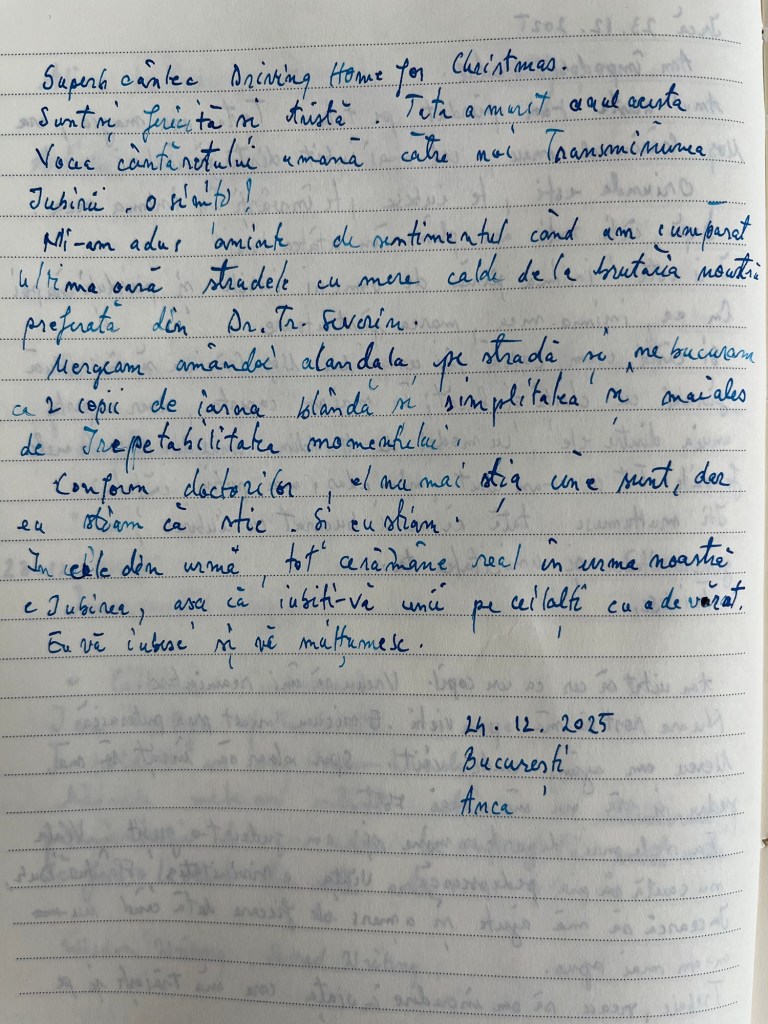 Superb cântec Driving Home for Christmas.
Sunt și fericită și tristă. Tata a murit anul acesta
Vocea cântărețului umană către noi Transmiterea
Iubirii. O simt!
Mi-am adus aminte de sentimentul când am cumpărat
ultima oară strudele cu mere calde de la brutăria noastră
preferată din Dr. Tr. Severin.
Mergeam amândoi alandala pe stradă și ne bucuram
ca 2 copii de iarna blândă și simplitatea și mai ales
de Irepetabilitatea momentului.
Conform doctorilor, el nu mai știa cine sunt, dar
eu știam că știe. Și eu știam.
In cele din urmă, tot ce rămâne real în urma noastră
e Iubirea, așa că iubiți-vă unii pe ceilalți cu adevărat.
Eu vă iubesc și vă mulțumesc.
24.12.2025
București
Anca